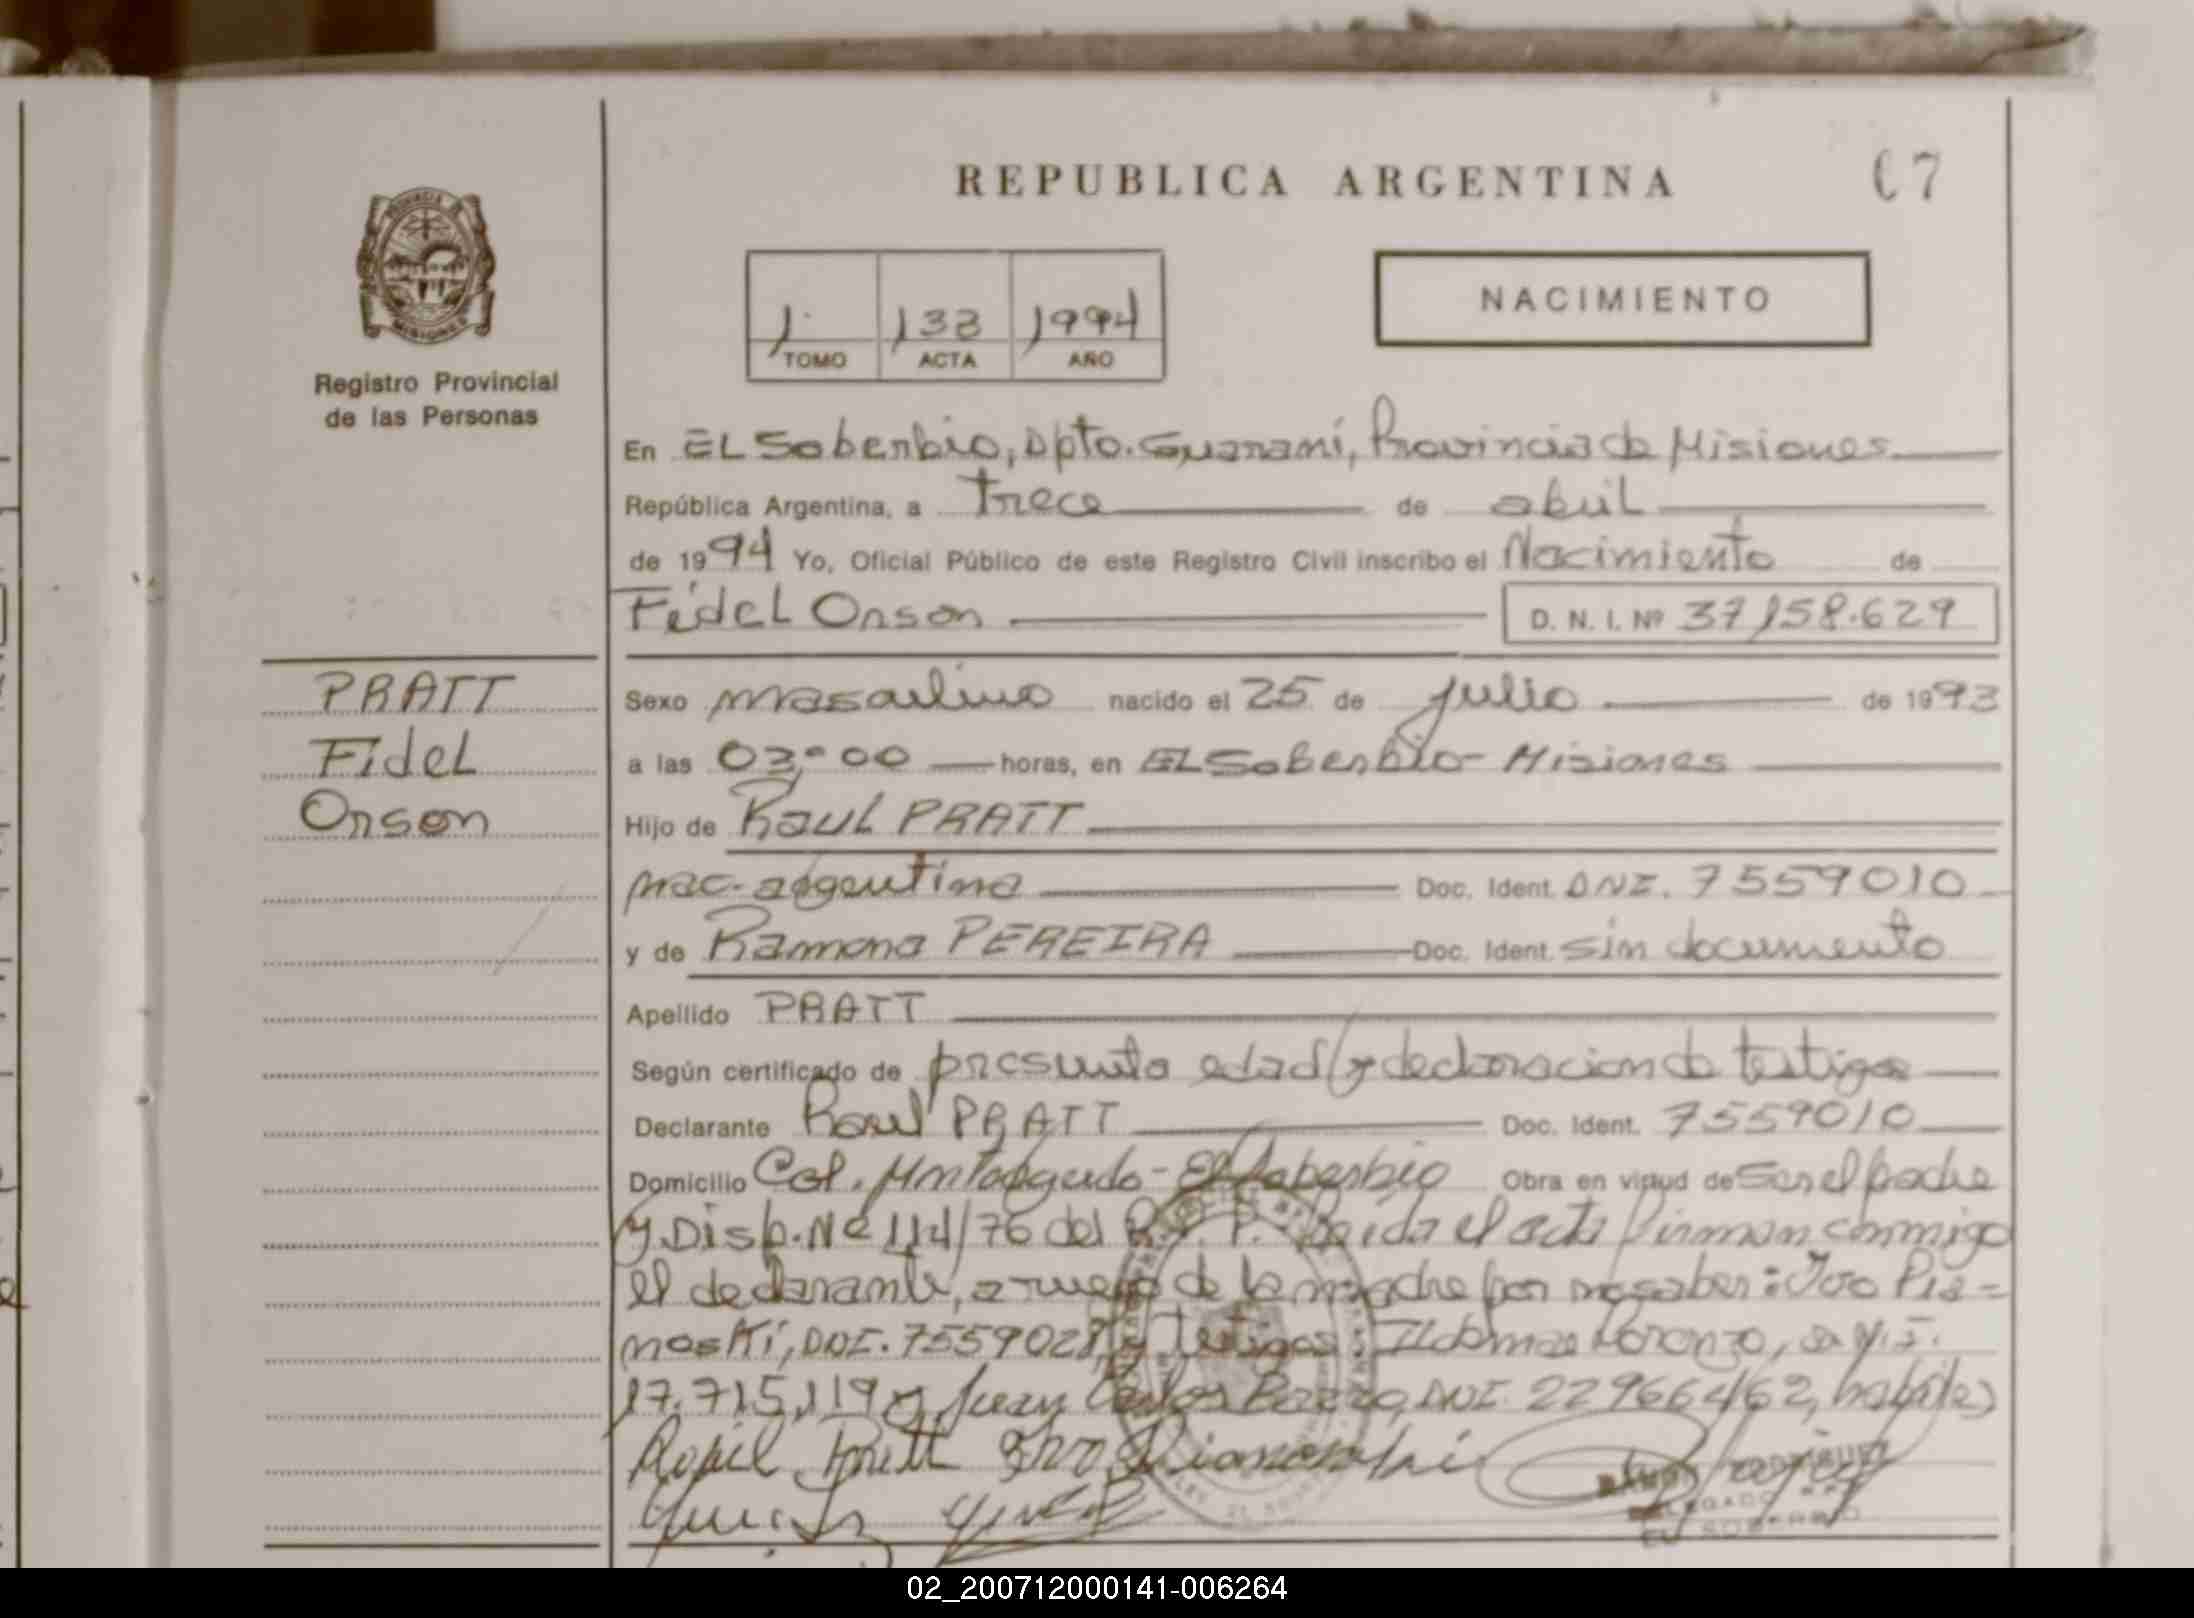 REPUBLICA ARGENTINA
67
PROVINCIA DE
MISIONES
Registro Provincial
de las Personas
1 133 1994
TOMO ACTA AÑO
NACIMIENTO
En EL Soberbio, Dpto. Guaraní, Provincia de Misiones
República Argentina, a Trece de abril
de 1994 Yo, Oficial Público de este Registro Civil inscribo el Nacimiento de
Fidel Orson D. N. I. Nº 37158.629
PRATT
Fidel
Orson
Sexo masculino nacido el 25 de julio de 1993
a las 03:00 horas, en EL Soberbio - Misiones
Hijo de Raul PRATT
nac. argentina Doc. Ident. DNI. 7559010
y de Ramona PEREIRA Doc. Ident. sin documento
Apellido PRATT
Según certificado de presunta edad y declaracion de testigos
Declarante Raul PRATT Doc. Ident. 7559010
Domicilio Col. Monteagudo - El Soberbio Obra en virtud de Ser el padre
y Disp. Nº 114/76 del R. P. P. Leida el acta firman conmigo
el declarante, a ruego de la madre por no saber: Ivo Pia-
noski, DNI. 7559028, y testigos: Ildemar Lorenzo,
17.715.119 y Juan Carlos DNI. 22966462, habiles
Raul Pratt Ivo Pianoski
DELEGADO
EL SOBERBIO
02_200712000141-006264